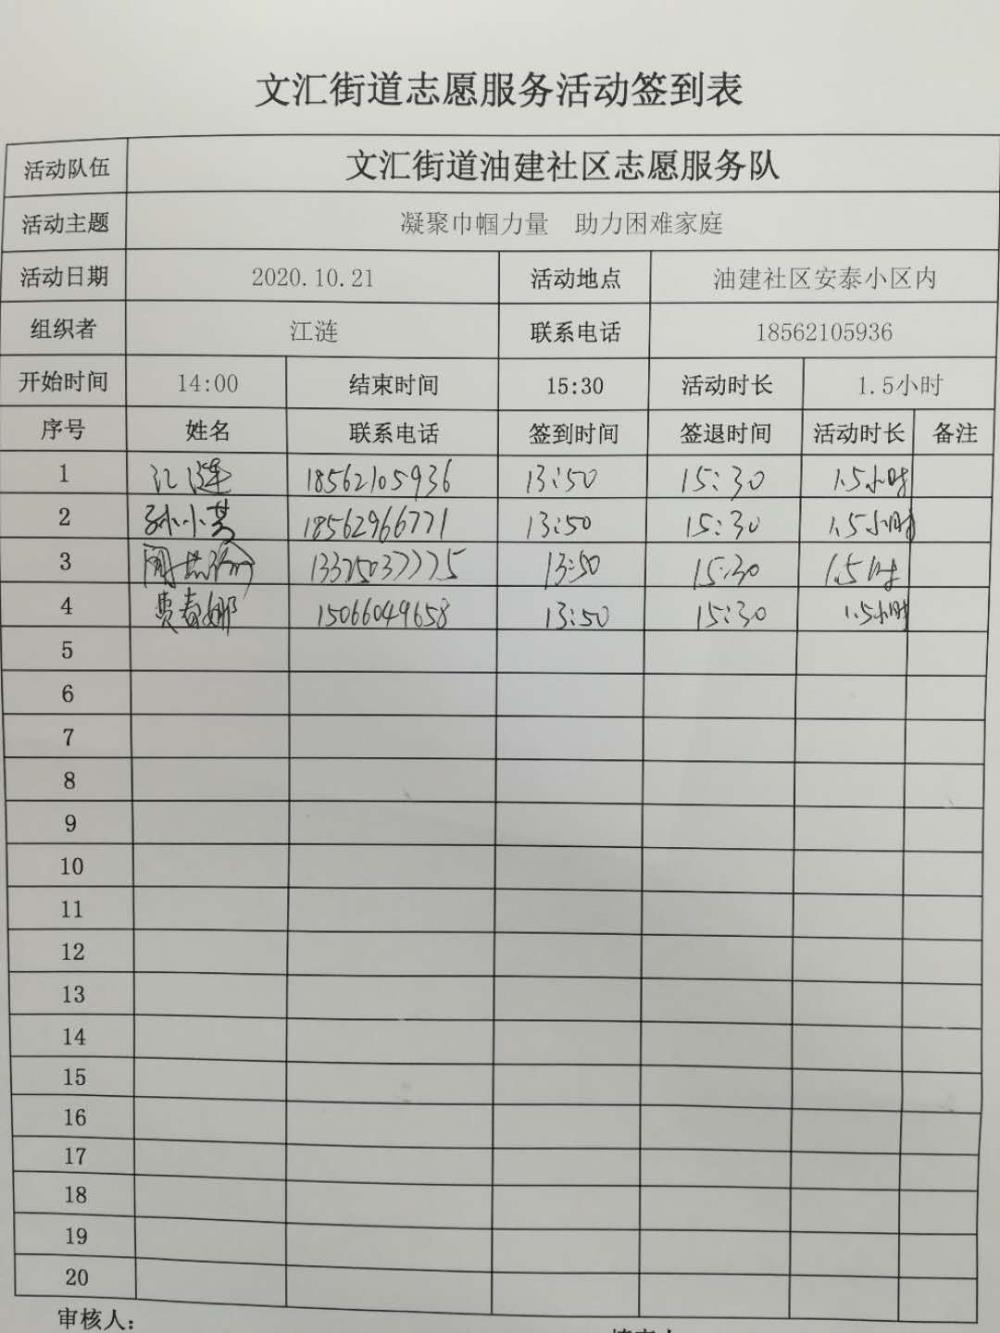 文汇街道志愿服务活动签到表
活动队伍 文汇街道油建社区志愿服务队
活动主题 凝聚巾帼力量 助力困难家庭
活动日期 2020.10.21 活动地点 油建社区安泰小区内
组织者 江涟 联系电话 18562105936
开始时间 14:00 结束时间 15:30 活动时长 1.5小时
序号 姓名 联系电话 签到时间 签退时间 活动时长 备注
1 江涟 18562105936 13:50 15:30 1.5小时
2 孙小 18562966771 13:50 15:30 1.5小时
3 13325037775 13:50 15:30 1.5时
4 贾春娜 15066049658 13:50 15:30 1.5小时
5
6
7
8
9
10
11
12
13
14
15
16
17
18
19
20
审核人: